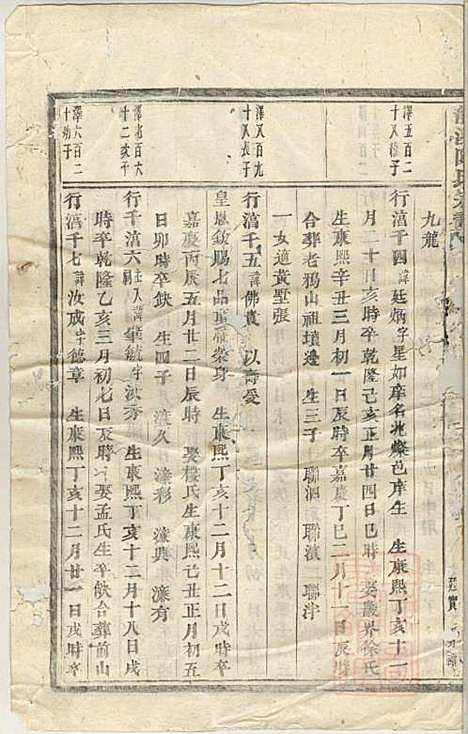 九龍
澤五百二
十又滄子
行滈千四諱廷炳字星如庠名兆燦邑庠生 生康熙丁亥十一
月二十日亥時卒乾隆己亥正月廿四日巳時 娶嚴界徐氏
生康熙辛丑三月初一日辰時卒嘉慶丁巳二月十一日辰時
合葬老鴉山祖墳邊 生三子 聯泗 聯濱 聯洋
一女適黃墅張
澤又百九
十又長子
行滈千五諱佛賞 以壽受
皇恩欽賜七品冠帶榮身 生康熙丁亥十二月十二日戌時卒
嘉慶丙辰五月廿二日辰時 娶樓氏生康熙己丑正月初五
日卯時卒缺 生四子 濂久 濂彩 濂興 濂有
百六
十二次子
行千滈六 諱 字汝秀 生康熙丁亥十二月十八日戌
時卒乾隆乙亥三月初七日辰時 娶孟氏生卒缺合葬前山
澤六百二
十幼子
行滈千七諱汝成字德章 生康熙丁亥十二月廿一日戌時卒